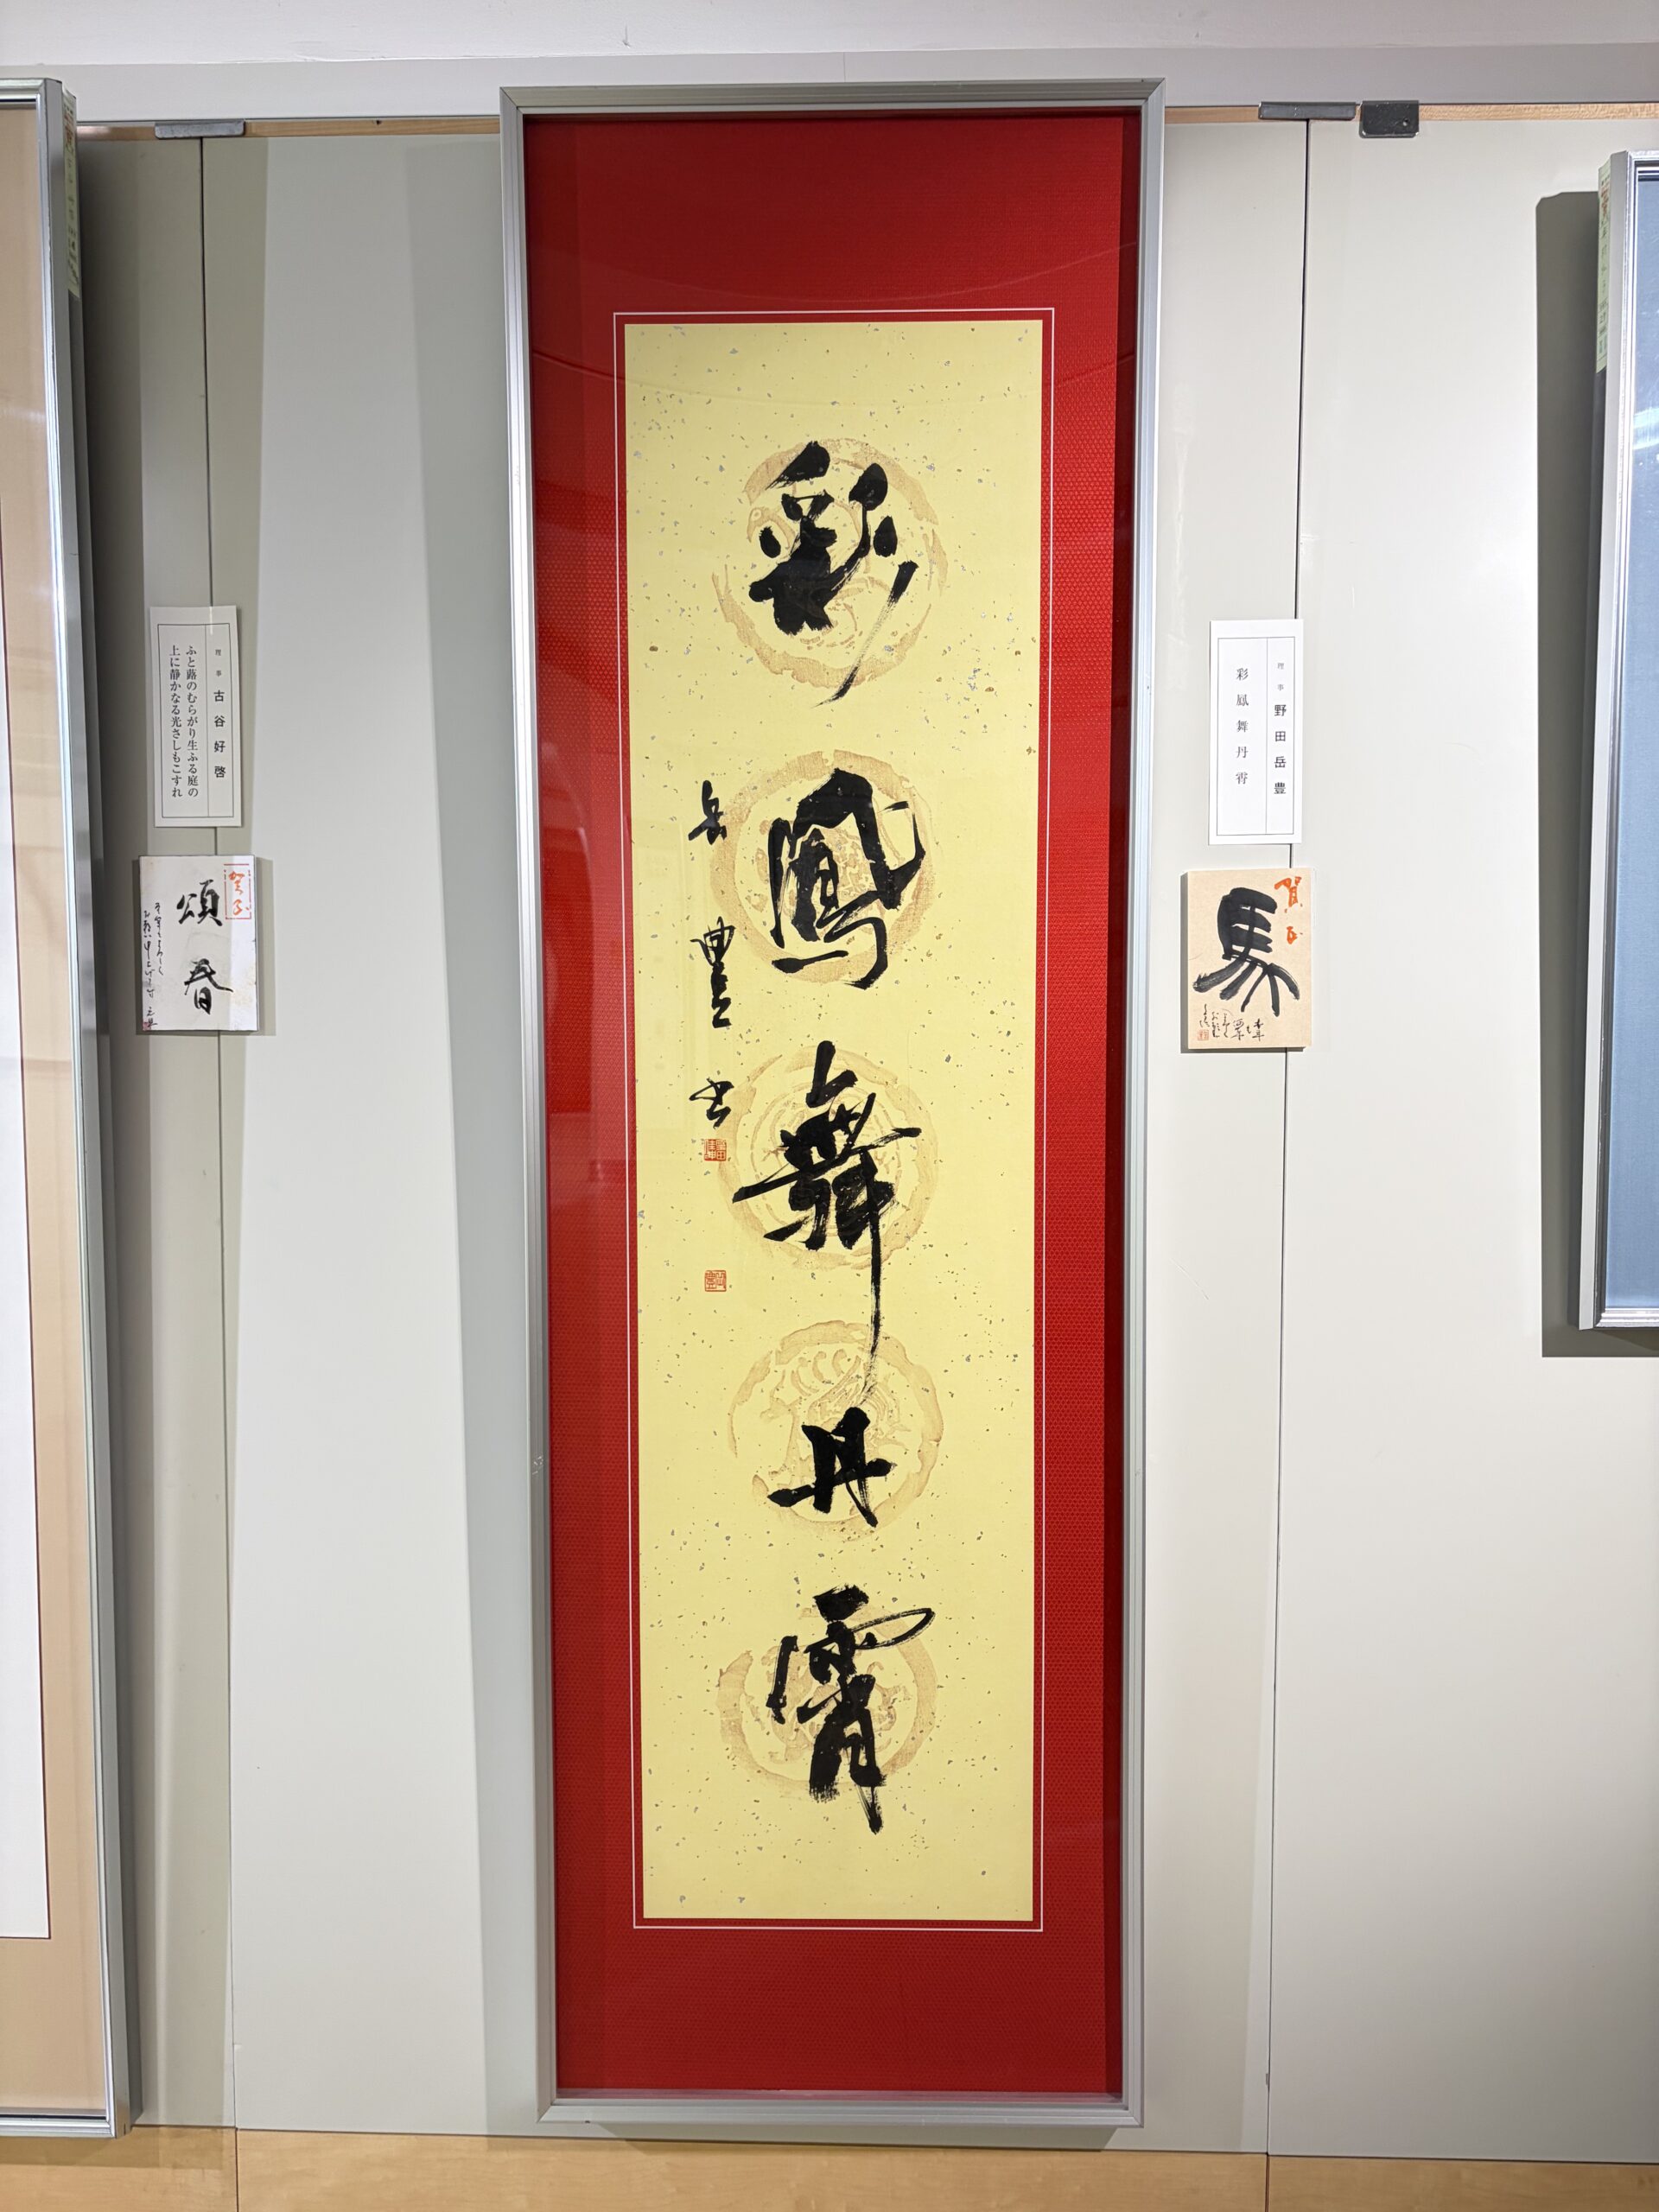 彩鳳舞丹霄
岳豊書
理事 野田岳豊
彩鳳舞丹霄
賀正
馬
理事 古谷好啓
ふと蕗のむらがり生ふる庭の
上に静かなる光さしもこすれ
頌春